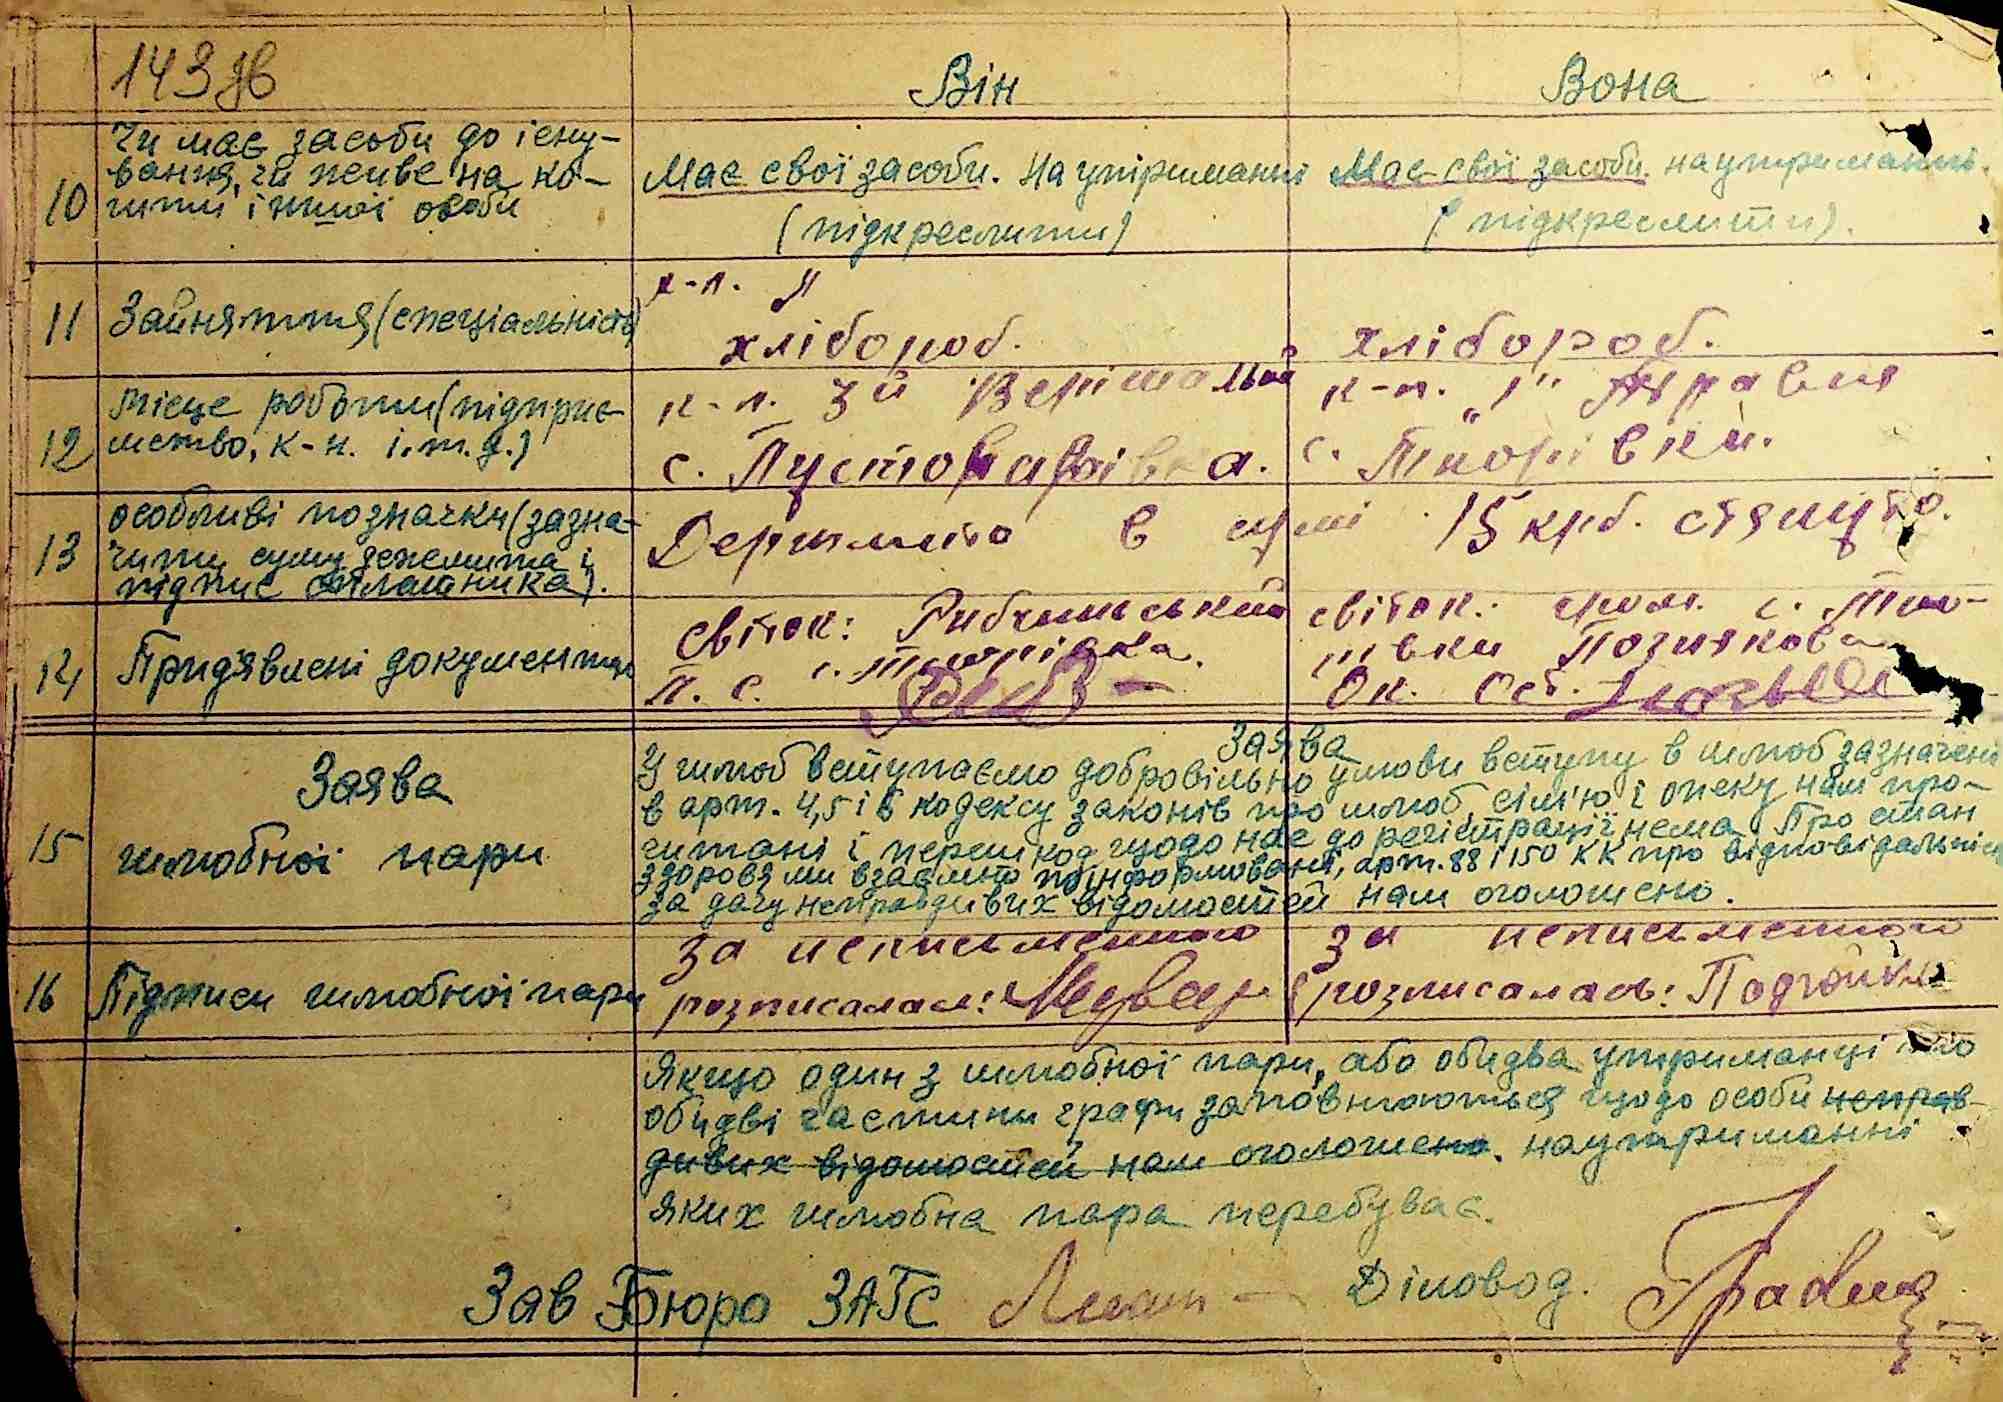 143 зв
Він
Вона
10
Чи має засоби до існу-
вання, чи живе на ко-
шти іншої особи
Має свої засоби. На утриманні
(підкреслити)
Має свої засоби. на утриманні.
(підкреслити).
11
Зайняття (спеціальність)
к-п. "
хлібороб.
хлібороб.
12
місце роботи (підприє-
мство, к-н. і. т. д.)
к-п. 3й Вирішальний
с. Пустоварівка.
к-п. "1" Травня
с. Тхорівки.
13
особливі позначки (зазна-
чити суму держмита і
підпис сплатника).
Держмито в сумі 15 крб. стянуто.
14
Прид'явлені документи
свідок: Рибчинський
П. С. с. Тхорівка.
свідок: гром. с. Тхо-
рівки Познякова
Ок. Ос.
15
Заява
шлюбної пари
Заява
У шлюб вступаємо добровільно умови вступу в шлюб зазначені
в арт. 4,5 і 6 кодексу законів про шлюб, сім'ю і опеку нам про-
читані і перешкод щодо нас до регістрації нема. Про стан
здоровя ми взаємно поінформовані, арт. 88 і 150 КК про відповідальність
за дачу неправдивих відомостей нам оголошено.
16
Підписи шлюбної пари
за неписьменного
розписалась: Медвед
за неписьменного
розписалась: Подгайко
Якщо один з шлюбної пари, або обидва утриманці то
обидві частини графи заповнюються щодо особи неправ-
дивих відомостей нам оголошено. на утриманні
яких шлюбна пара перебуває.
Зав Бюро ЗАГС
Діловод.